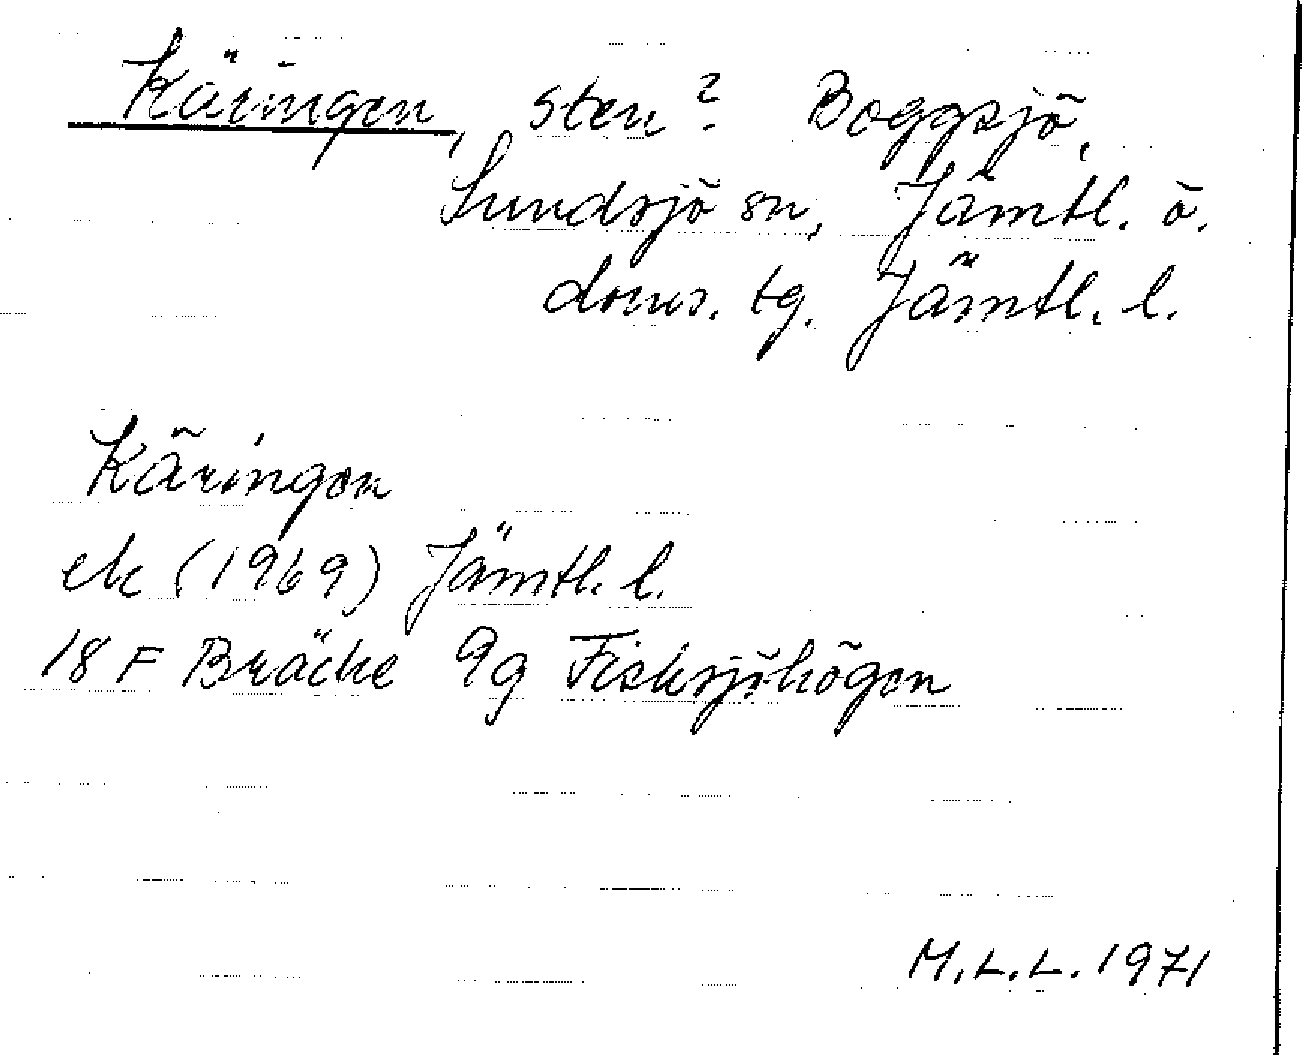 Käringen, sten? Boggsjö,
Sundsjö sn, Jämtl. ö.
doms. tg. Jämtl. l.
Käringen
ek (1969) Jämtl. l.
18 F Bräcke 9g Fisksjöhögen
M.L.L. 1971